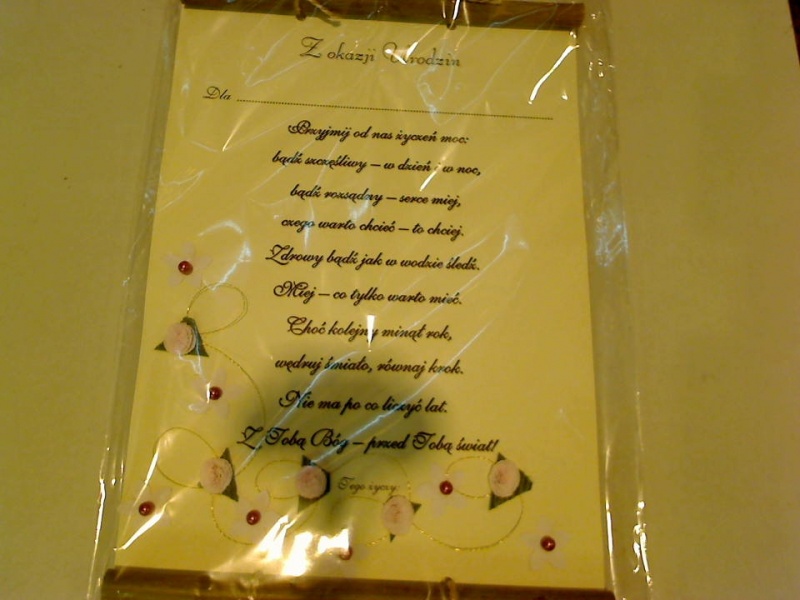 Z okazji Urodzin
Dla
Przyjmij od nas życzeń moc:
bądź szczęśliwy – w dzień i w noc,
bądź rozsądny – serce miej,
czego warto chcieć – to chciej.
Zdrowy bądź jak w wodzie śledź.
Miej – co tylko warto mieć.
Choć kolejny minął rok,
wędruj śmiało, równaj krok.
Nie ma po co liczyć lat.
Z Tobą Bóg – przed Tobą świat!
Tego życzy: